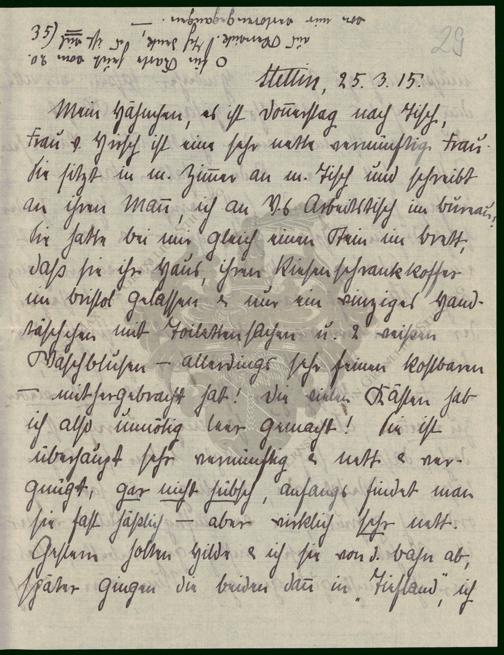 35)
29
Stettin, 25.3.15.
Mein Hähnchen, es ist Donnerstag nach Tisch,
Frau v. Hirsch ist eine sehr nette vernünftige Frau.
Sie sitzt in m. Zimmer an m. Tisch und schreibt
an ihren Mann, ich an V's Arbeitstisch im Bureau.
Sie hatte bei mir gleich einen Stein im Brett,
daß sie ihr Haus, ihren Riesenschrankkoffer
im Bristol gelassen & nur ein einziges Hand-
täschchen mit Toilettensachen u. 2 weißen
Waschblusen — allerdings sehr feinen kostbaren
— mithergebracht hat! Die vielen Kästen hab
ich also unnötig leer gemacht! Sie ist
überhaupt sehr vernünftig & nett & ver-
gnügt, gar nicht hübsch, anfangs findet man
sie fast häßlich — aber wirklich sehr nett.
Gestern holten Hilde & ich sie von d. Bahn ab,
später gingen die beiden dann in „Tiefland", ich